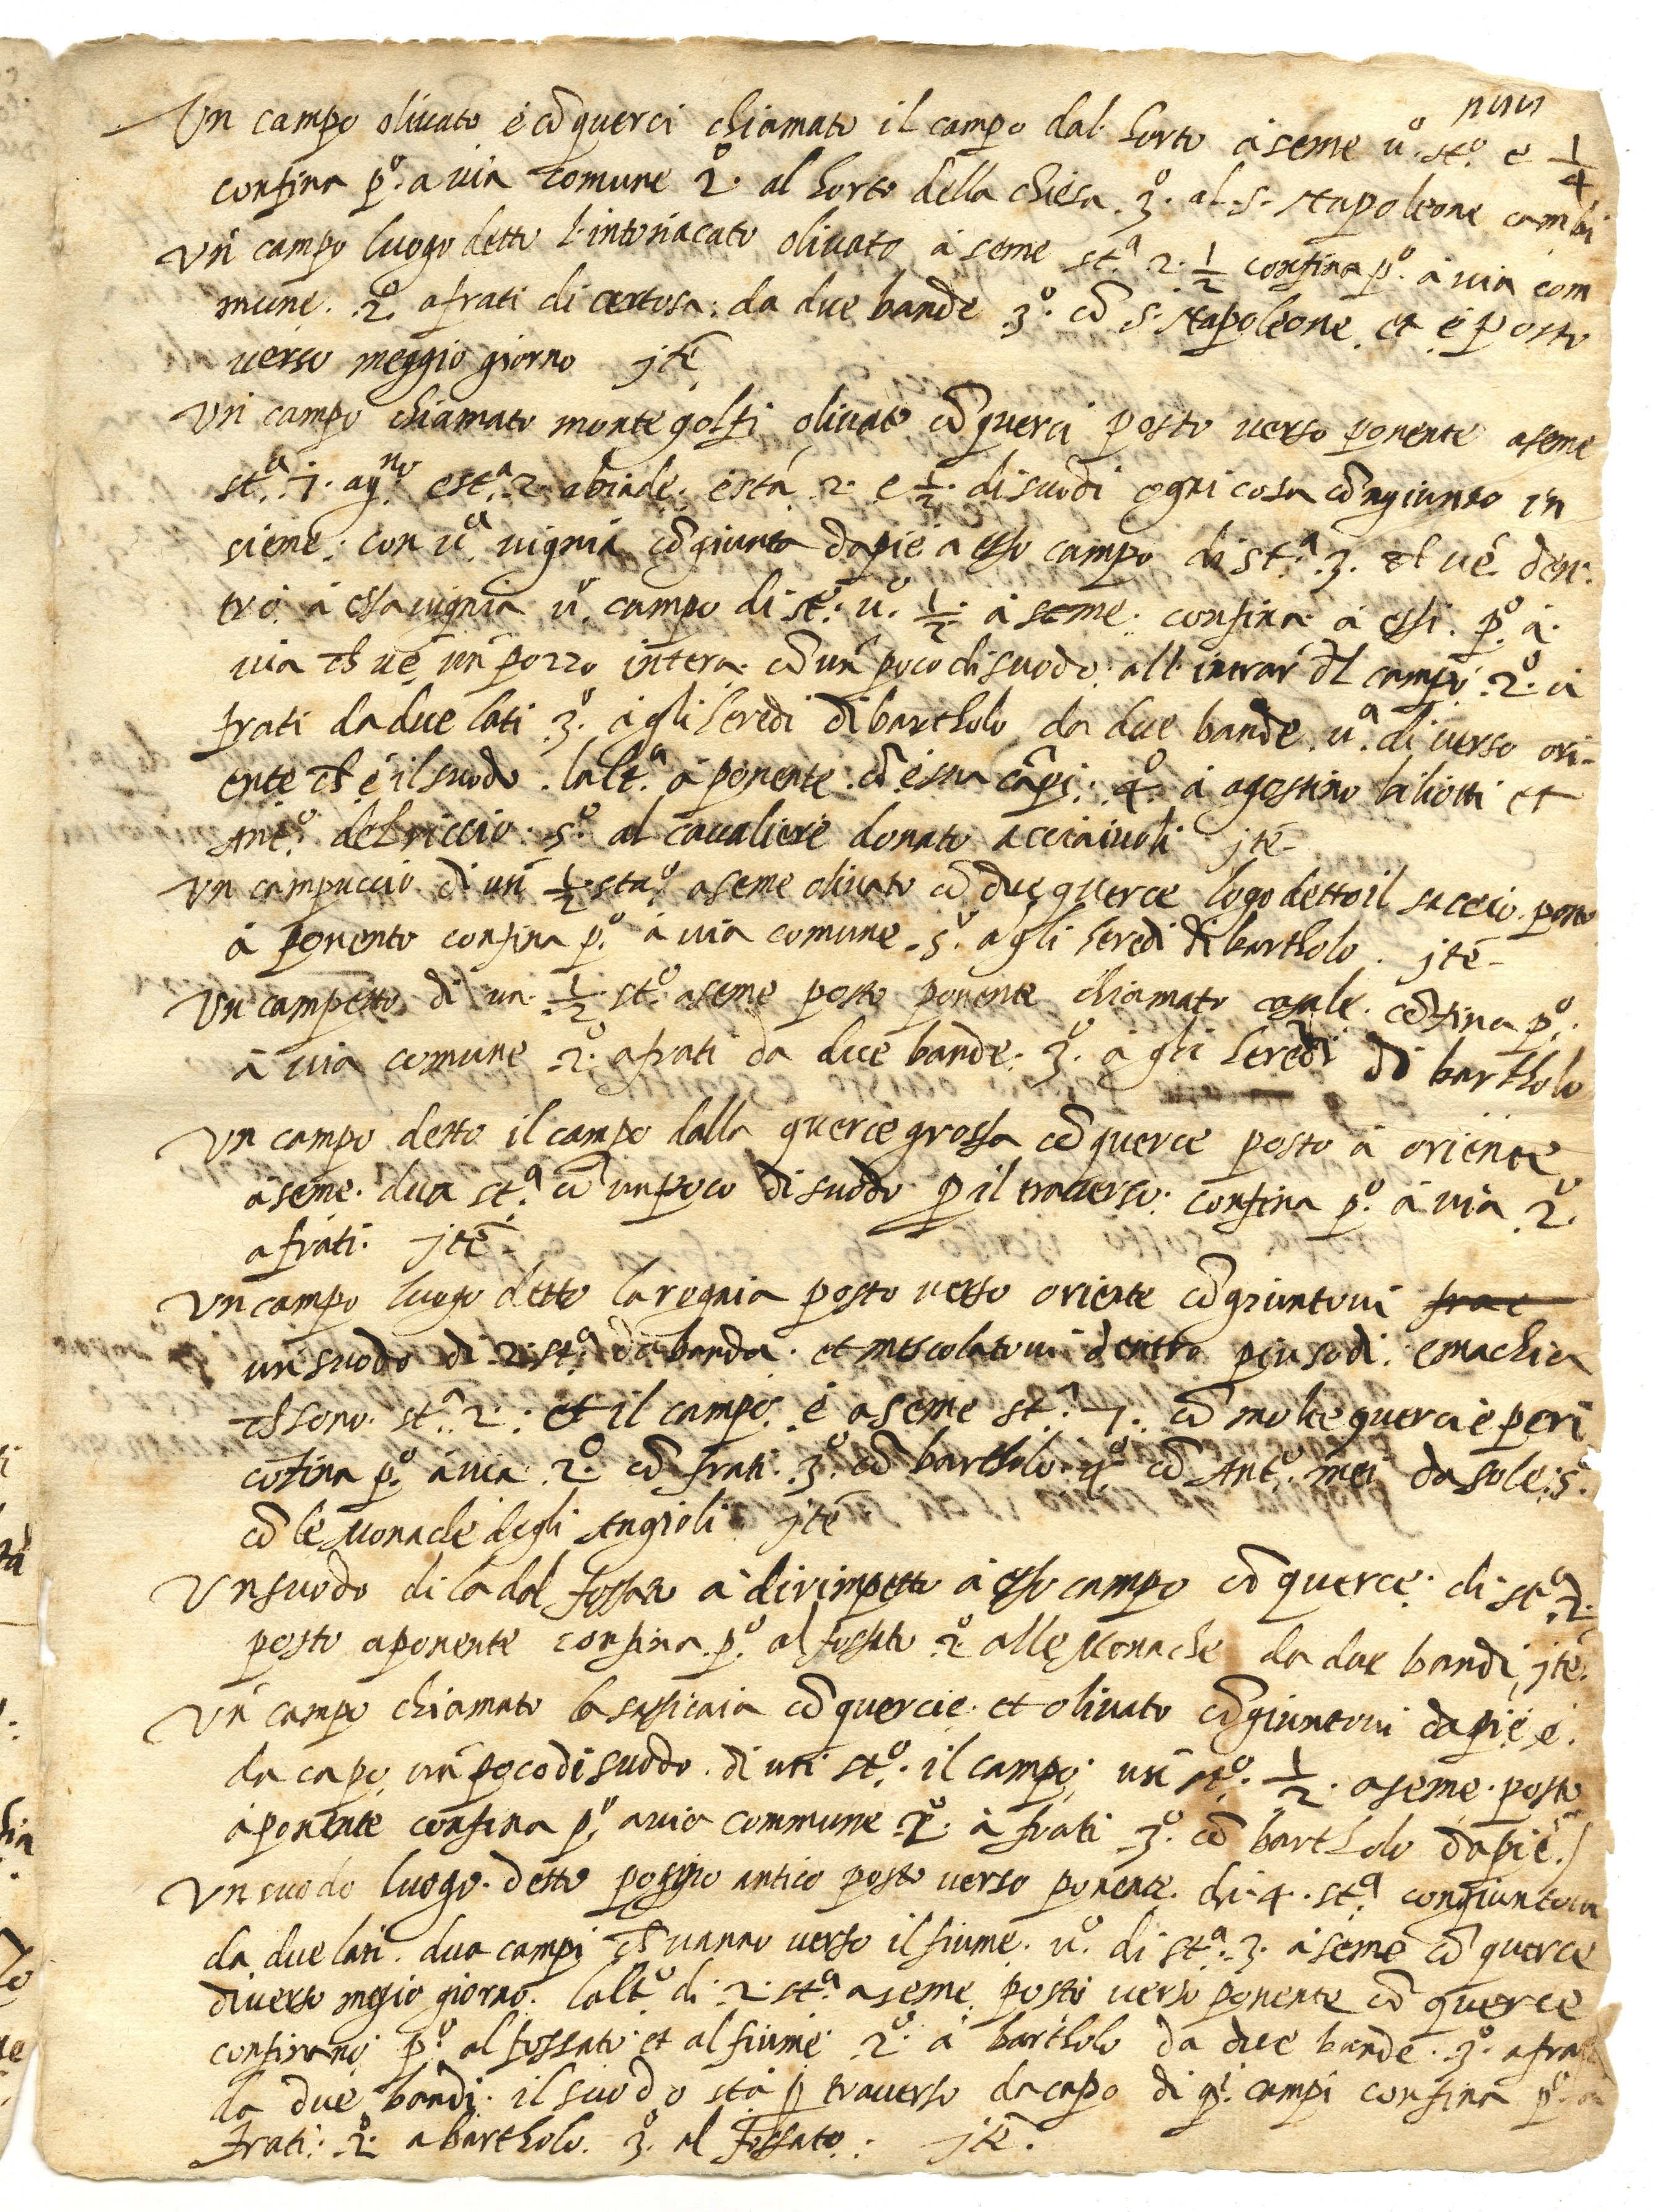 Un campo olivato é cõ querci chiamato il campo dal horto à seme u.º st.º e 1/4
confina p.º a via comune 2.º al horto della chiesa. 3.º al s. Napoleone cambi
Un campo luogo detto l'intoniacato olivato à seme st.ª 2. 1/2 confina p.º à via com
mune. 2.º a frati di certosa. da due bande 3.º cõ s. Napoleone. et é posto
verso meggio giorno jtẽ
Un campo chiamato monte golfi olivato cõ querci posto verso ponente a seme
st.ª 7. e st.ª 2 e 1/2. di suodi ogni cosa cõngiunto in
sieme. con u.ª vignia cõgiunta da pie a esso campo di st.ª 3. ch ve den
tro à essa vignia u.º campo di st.º u.º 1/2 à seme. confina à essi. p.º à
via ch ve un pozzo intera. cõ un poco di suodo. all' intrar dl campo 2.º à
frati da due lati 3.º à gli heredi di bartholo da due bande. u.ª di verso ori-
ente ch é il suodo. l'alt.ª à ponente. cõ cãpi. 4.º à agostino biliotti et
Ant.º del riccio. 5.º al cavaliere donato acciaiuoli jtẽ-
Un campuccio di un 1/2 sta.º a seme olivato cõ due querce logo detto il posto
à ponente confina p.º à via comune. s.º a gli heredi di bartholo. jtẽ-
Un campetto di un. 1/2 st.º a seme posto ponente chiamato casale. cõfina p.º
à via comune 2.º a frati da due bande. 3.º à gli heredi di bartholo
Un campo detto il campo dalla querce grossa cõ querce posto à oriente
à seme. dua st.ª cõ un poco di suodo p il traverso. confina p.º à via 2.º
a frati. jtẽ-
Un campo luogo detto la rognia posto verso oriente cõgiuntovi frat
un suodo di 2. st.ª da banda. et mescolatovi dentro piu sodi. e machia
ch sono. st.ª 2. et il campo. é a seme st.ª 7. cõ molte querci e peri
cõfina p.º à via 2.º cõ frati. 3.º cõ bartholo. 4.º cõ Ant.º mei da sole. 5.º
cõ le Monache degli Angioli jtẽ
Un suodo di la dal fossato à dirimpetto à esso campo cõ querce. di st.ª 2.
posto a ponente confina. p.º al fossato 2.º alle Monache da due bandi, jtẽ.
Un campo chiamato la sassicaia cõ quercie. et olivato cõgiuntovi da pie é.
da capo un poco di suodo. di un st.º il campo un st.º 1/2. a seme. posto
à ponente confina p.º a via commune 2.º à frati 3.º cõ bartholo da pie./
Un suodo luogo. detto poggio antico posto verso ponente. di. 4. st.ª congiuntovi
da due lati. dua campi ch vanno verso il fiume. u.º di st.ª 3. à seme cõ querce
di verso megio giorno. l'alt.º di 2 st.ª a seme posto verso ponente cõ querce
confinano p.º al fossato et al fiume 2.º à bartholo da due bande. 3.º a frati
da due bandi. il suodo sta p traverso da capo di q.i campi confina p.º à
frati. 2.º a bartholo. 3.º al fossato. jtẽ.